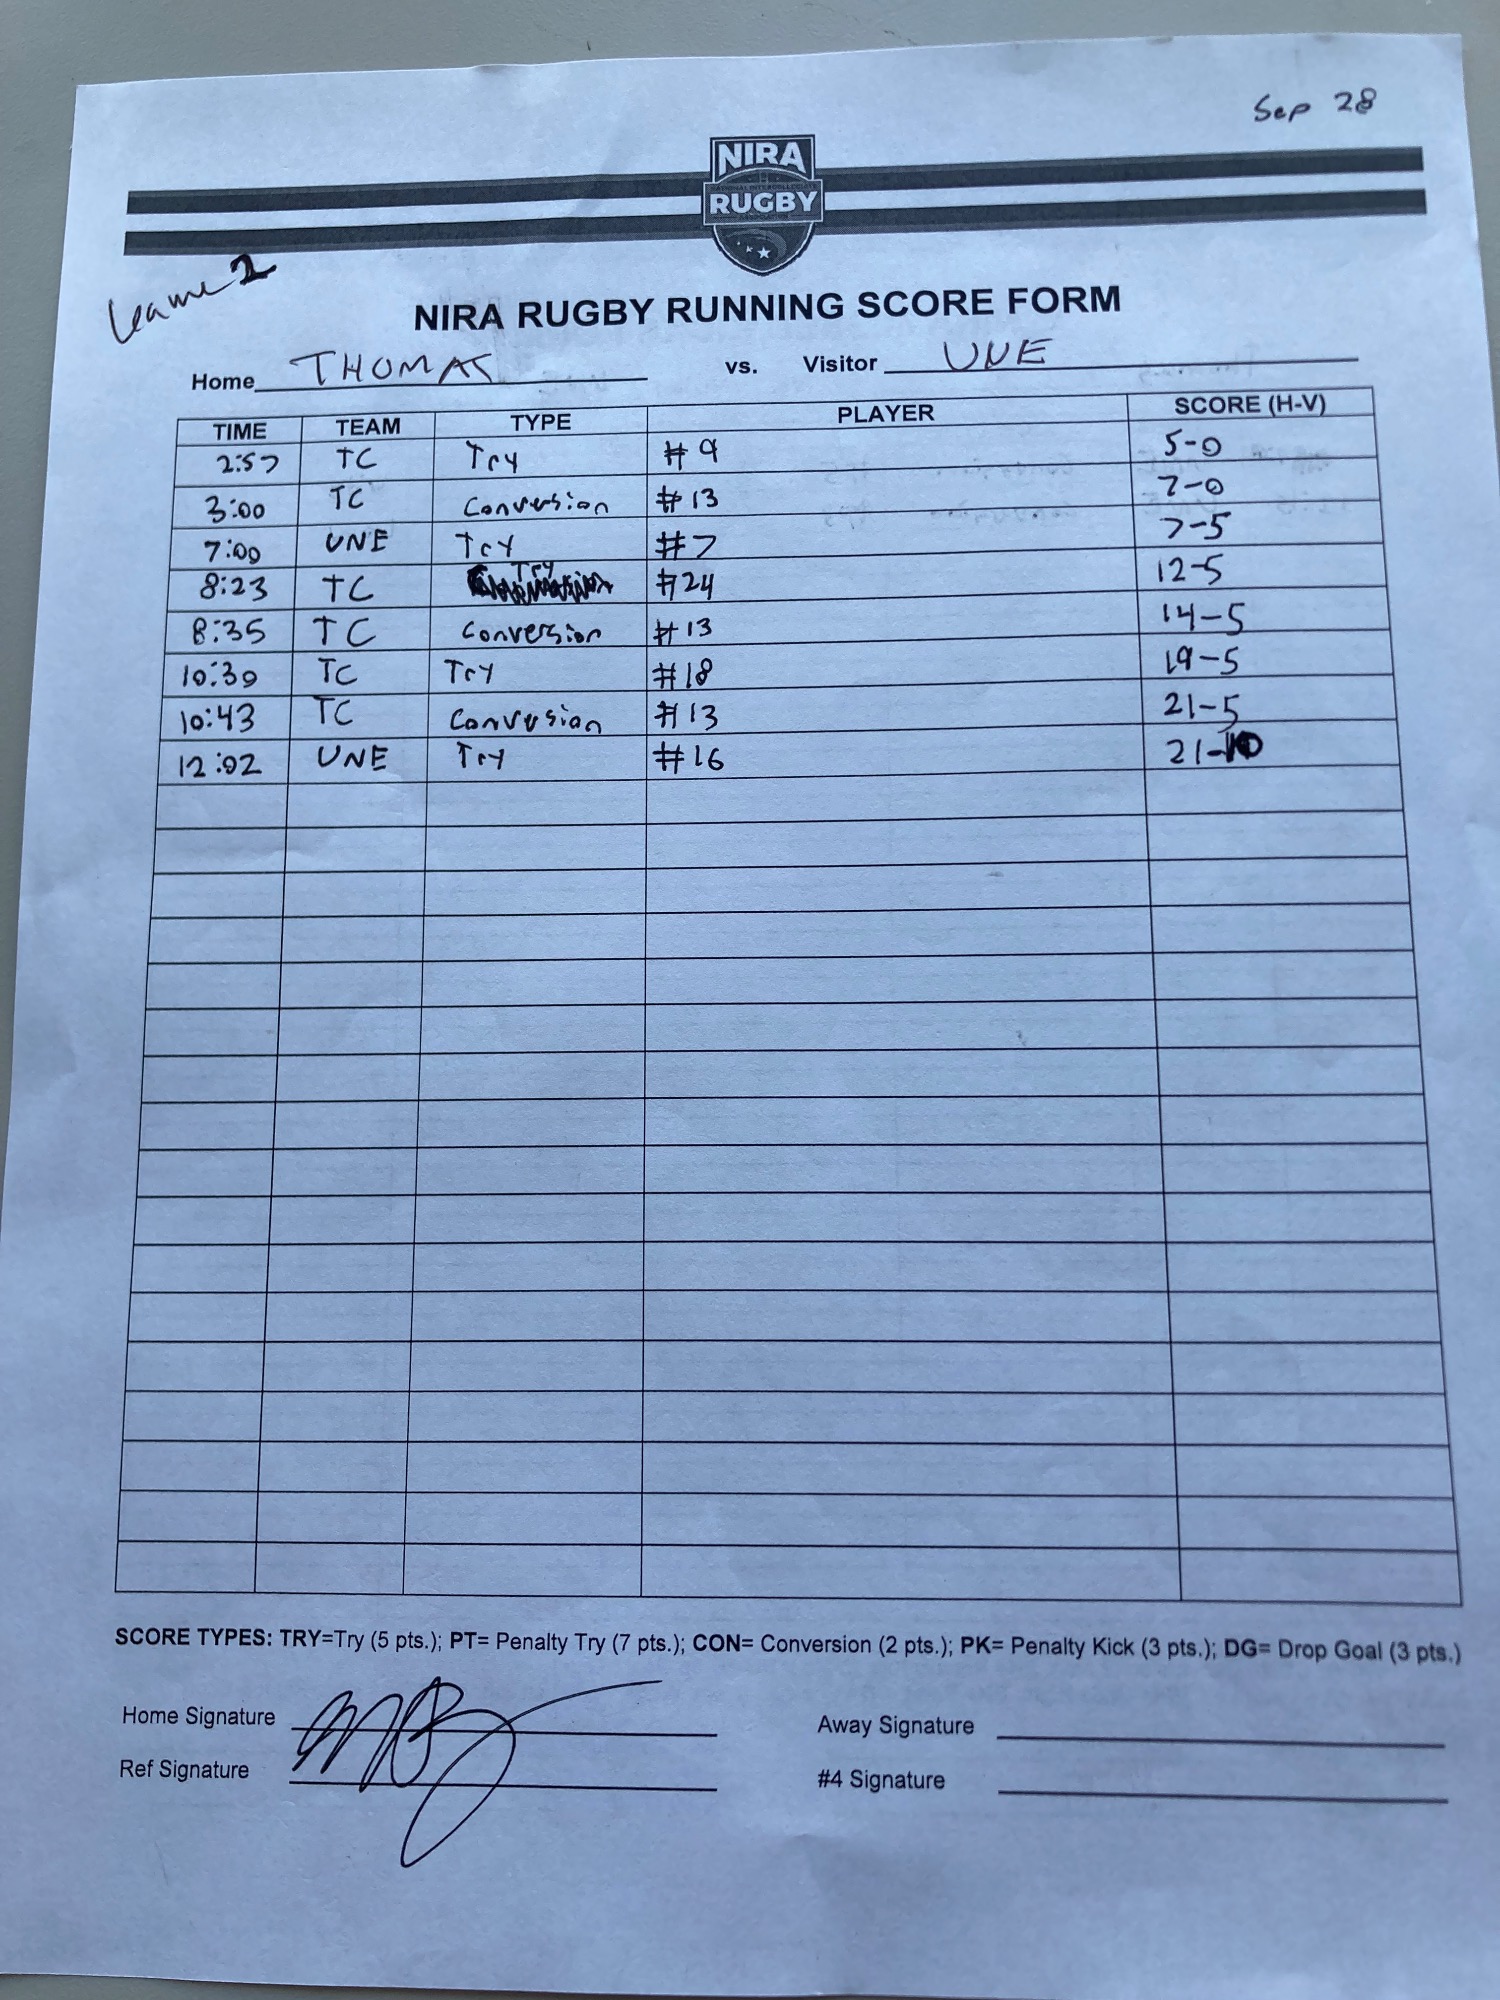 Sep 28
NIRA
NATIONAL INTERCOLLEGIATE
RUGBY
2
NIRA RUGBY RUNNING SCORE FORM
Home THOMAS vs. Visitor UNE
TIME TEAM TYPE PLAYER SCORE (H-V)
2:57 TC Try #9 5-0
3:00 TC Conversion #13 7-0
7:00 UNE Try #7 7-5
8:23 TC Try #24 12-5
8:35 TC Conversion #13 14-5
10:30 TC Try #18 19-5
10:43 TC Conversion #13 21-5
12:02 UNE Try #16 21-10
SCORE TYPES: TRY=Try (5 pts.); PT= Penalty Try (7 pts.); CON= Conversion (2 pts.); PK= Penalty Kick (3 pts.); DG= Drop Goal (3 pts.)
Home Signature Away Signature
Ref Signature #4 Signature